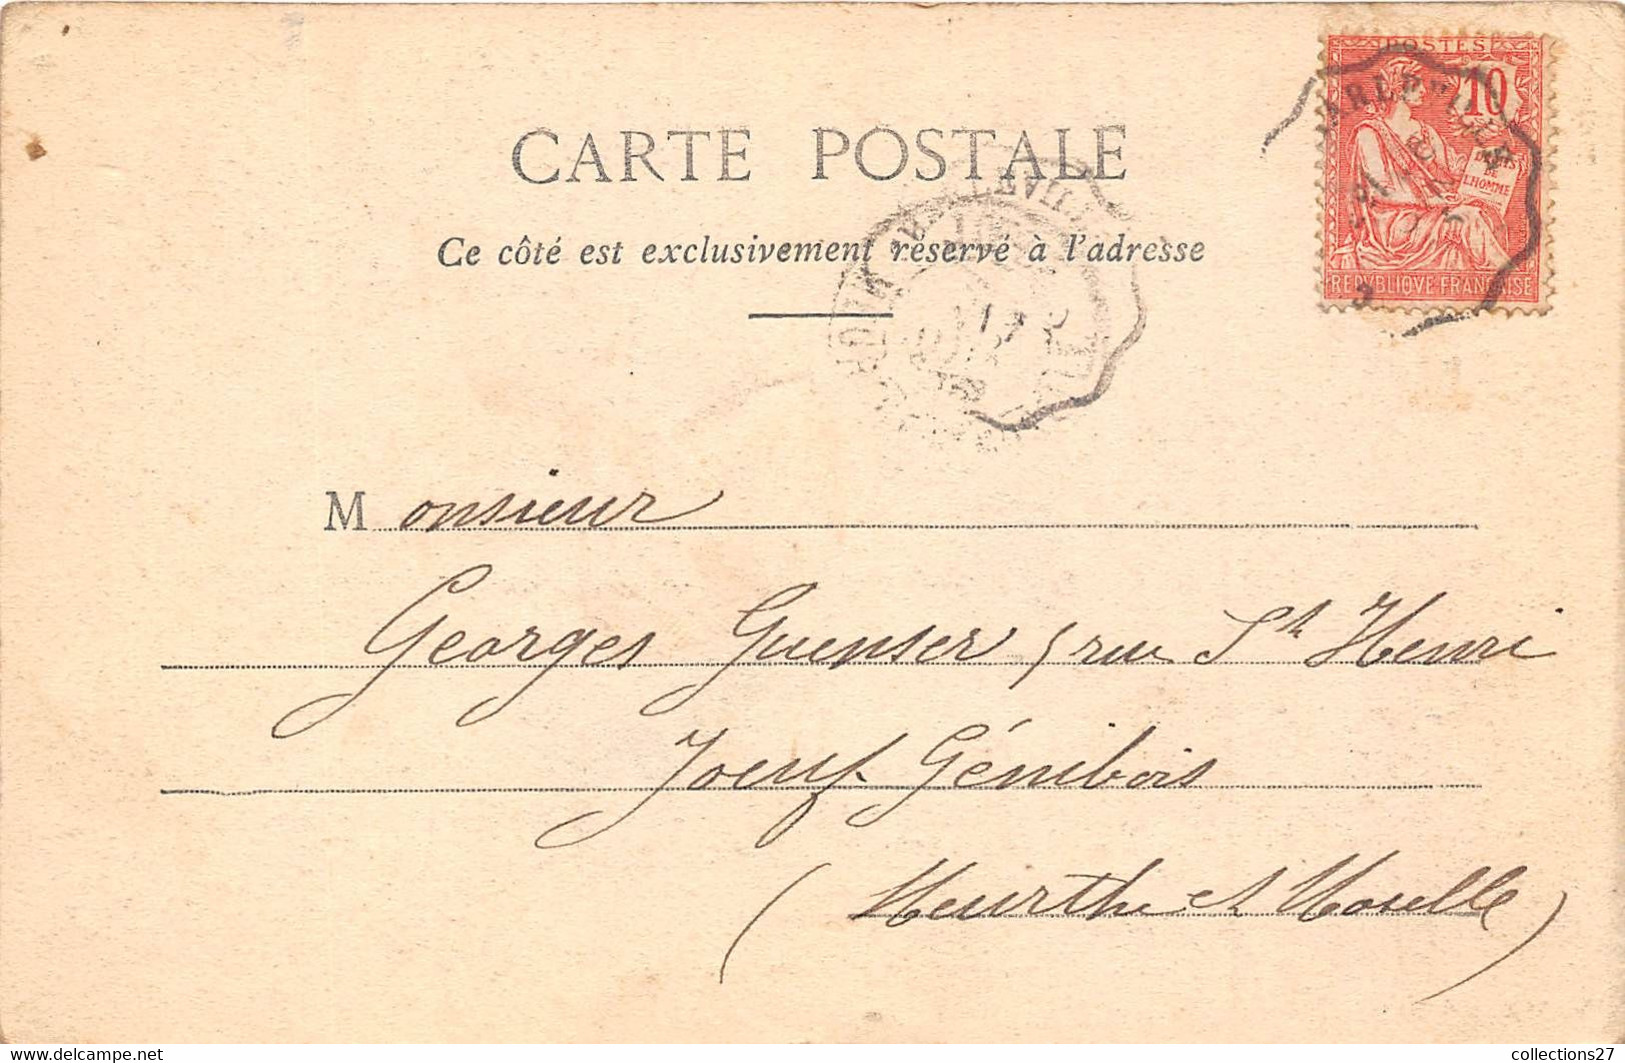 POSTES
10
DROITS
DE
L'HOMME
REPVBLIQVE FRANÇAISE
CARTE POSTALE
Ce côté est exclusivement réservé à l'adresse
Monsieur
Georges Guenser, rue St Henri
Joeuf. Génibois
(Meurthe et Moselle)
collections27